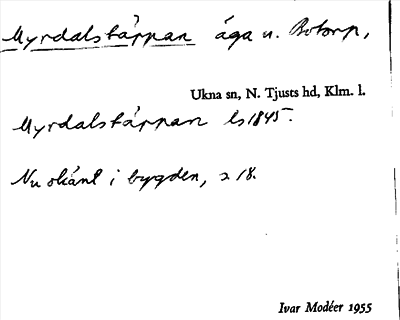 Myrdalstäppan äga u. Botorp,
Ukna sn, N. Tjusts hd, Klm. l.
Myrdalstäppan ls 1845.
Nu okänt i bygden, s 18.
Ivar Modéer 1955